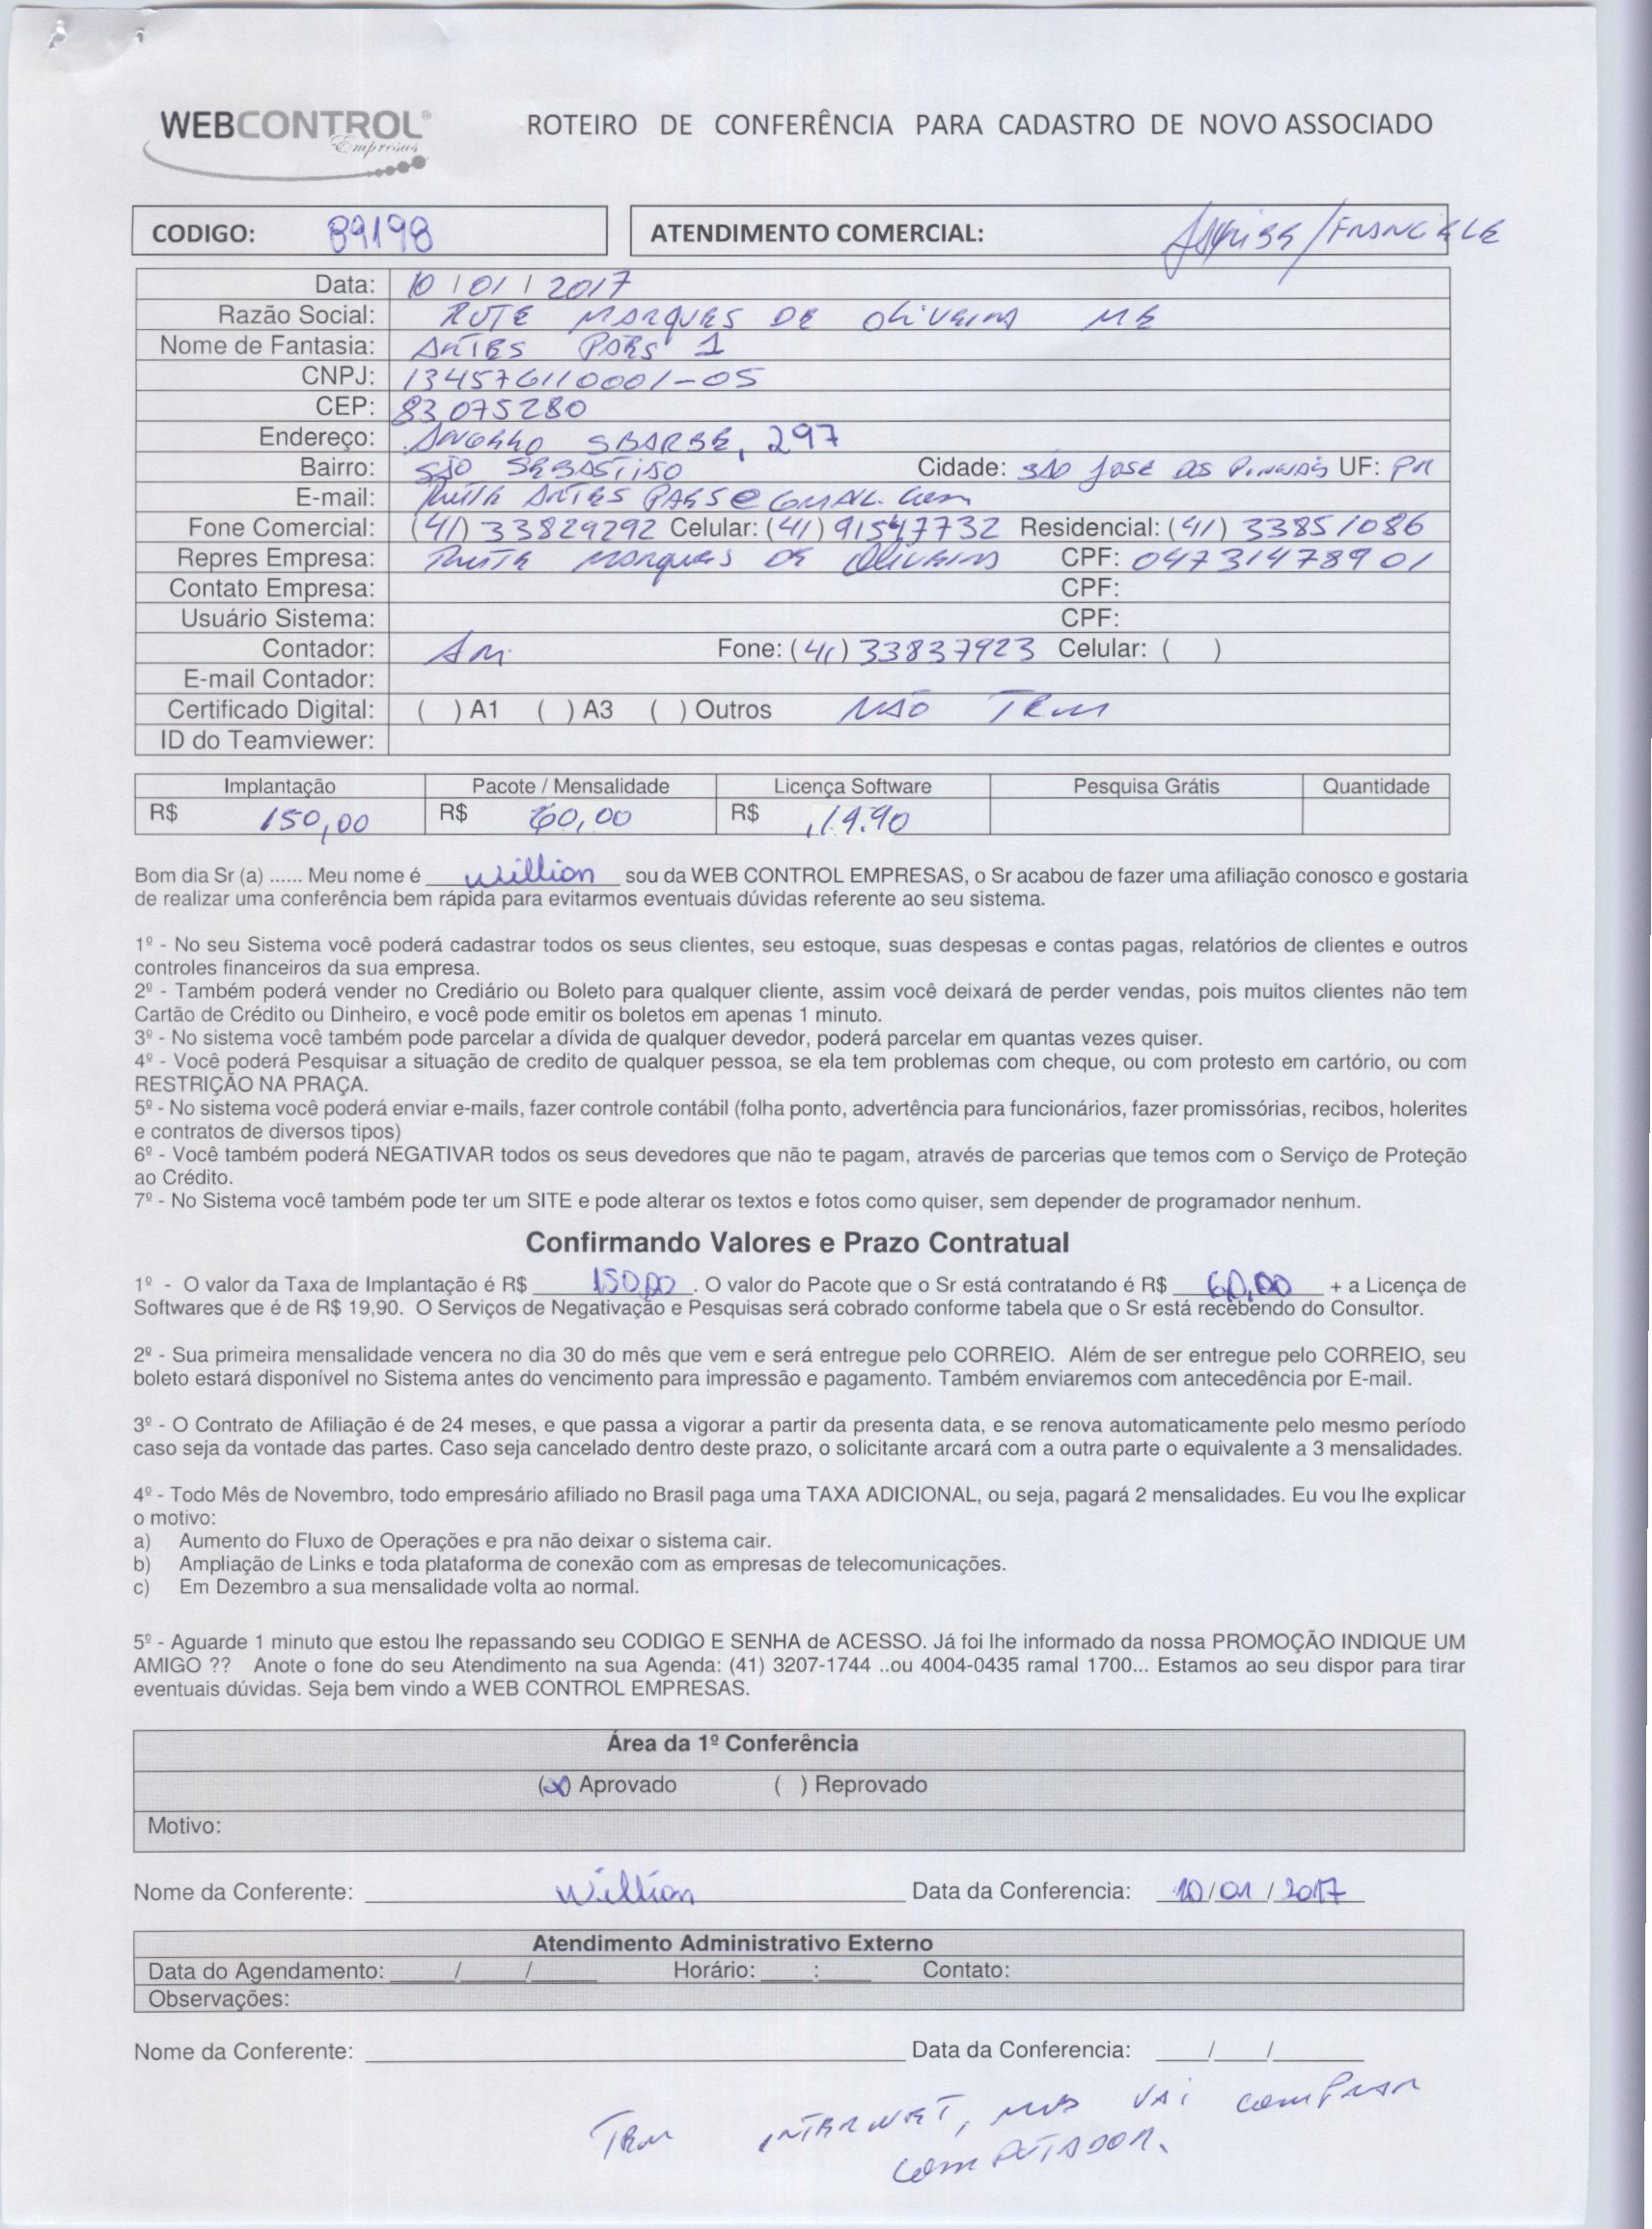 WEBCONTROL® Empresas
ROTEIRO DE CONFERÊNCIA PARA CADASTRO DE NOVO ASSOCIADO
CODIGO: 89198 ATENDIMENTO COMERCIAL: /FRANCIELE
Data: 10 / 01 / 2017
Razão Social: RUTE MARQUES DE OLIVEIRA ME
Nome de Fantasia: ARTES PARS 1
CNPJ: 134576110001-05
CEP: 83075280
Endereço: 297
Bairro: SÃO SEBASTIÃO Cidade: SÃO JOSE DS PINHAIS UF: PR
E-mail:
Fone Comercial: (41) 33829292 Celular: (41) 91547732 Residencial: (41) 33851086
Repres Empresa: RUTE MARQUES DE OLIVEIRA CPF: 04731478901
Contato Empresa: CPF:
Usuário Sistema: CPF:
Contador: Fone: (41) 33837923 Celular: ( )
E-mail Contador:
Certificado Digital: ( ) A1 ( ) A3 ( ) Outros NÃO TEM
ID do Teamviewer:
Implantação Pacote / Mensalidade Licença Software Pesquisa Grátis Quantidade
R$ 150,00 R$ 60,00 R$ 19.90
Bom dia Sr (a) ...... Meu nome é Willion sou da WEB CONTROL EMPRESAS, o Sr acabou de fazer uma afiliação conosco e gostaria
de realizar uma conferência bem rápida para evitarmos eventuais dúvidas referente ao seu sistema.
1º - No seu Sistema você poderá cadastrar todos os seus clientes, seu estoque, suas despesas e contas pagas, relatórios de clientes e outros
controles financeiros da sua empresa.
2º - Também poderá vender no Crediário ou Boleto para qualquer cliente, assim você deixará de perder vendas, pois muitos clientes não tem
Cartão de Crédito ou Dinheiro, e você pode emitir os boletos em apenas 1 minuto.
3º - No sistema você também pode parcelar a dívida de qualquer devedor, poderá parcelar em quantas vezes quiser.
4º - Você poderá Pesquisar a situação de credito de qualquer pessoa, se ela tem problemas com cheque, ou com protesto em cartório, ou com
RESTRIÇÃO NA PRAÇA.
5º - No sistema você poderá enviar e-mails, fazer controle contábil (folha ponto, advertência para funcionários, fazer promissórias, recibos, holerites
e contratos de diversos tipos)
6º - Você também poderá NEGATIVAR todos os seus devedores que não te pagam, através de parcerias que temos com o Serviço de Proteção
ao Crédito.
7º - No Sistema você também pode ter um SITE e pode alterar os textos e fotos como quiser, sem depender de programador nenhum.
Confirmando Valores e Prazo Contratual
1º - O valor da Taxa de Implantação é R$ 150,00. O valor do Pacote que o Sr está contratando é R$ 60,00 + a Licença de
Softwares que é de R$ 19,90. O Serviços de Negativação e Pesquisas será cobrado conforme tabela que o Sr está recebendo do Consultor.
2º - Sua primeira mensalidade vencera no dia 30 do mês que vem e será entregue pelo CORREIO. Além de ser entregue pelo CORREIO, seu
boleto estará disponível no Sistema antes do vencimento para impressão e pagamento. Também enviaremos com antecedência por E-mail.
3º - O Contrato de Afiliação é de 24 meses, e que passa a vigorar a partir da presenta data, e se renova automaticamente pelo mesmo período
caso seja da vontade das partes. Caso seja cancelado dentro deste prazo, o solicitante arcará com a outra parte o equivalente a 3 mensalidades.
4º - Todo Mês de Novembro, todo empresário afiliado no Brasil paga uma TAXA ADICIONAL, ou seja, pagará 2 mensalidades. Eu vou lhe explicar
o motivo:
a) Aumento do Fluxo de Operações e pra não deixar o sistema cair.
b) Ampliação de Links e toda plataforma de conexão com as empresas de telecomunicações.
c) Em Dezembro a sua mensalidade volta ao normal.
5º - Aguarde 1 minuto que estou lhe repassando seu CODIGO E SENHA de ACESSO. Já foi lhe informado da nossa PROMOÇÃO INDIQUE UM
AMIGO ?? Anote o fone do seu Atendimento na sua Agenda: (41) 3207-1744 ..ou 4004-0435 ramal 1700... Estamos ao seu dispor para tirar
eventuais dúvidas. Seja bem vindo a WEB CONTROL EMPRESAS.
Área da 1º Conferência
(x) Aprovado ( ) Reprovado
Motivo:
Nome da Conferente: Willion Data da Conferencia: 10/01/2017
Atendimento Administrativo Externo
Data do Agendamento: ___/___/___ Horário: ___:___ Contato:
Observações:
Nome da Conferente: ___ Data da Conferencia: ___/___/___
TEM INTERNET, MAS VAI COMPRAR
COMPUTADOR.